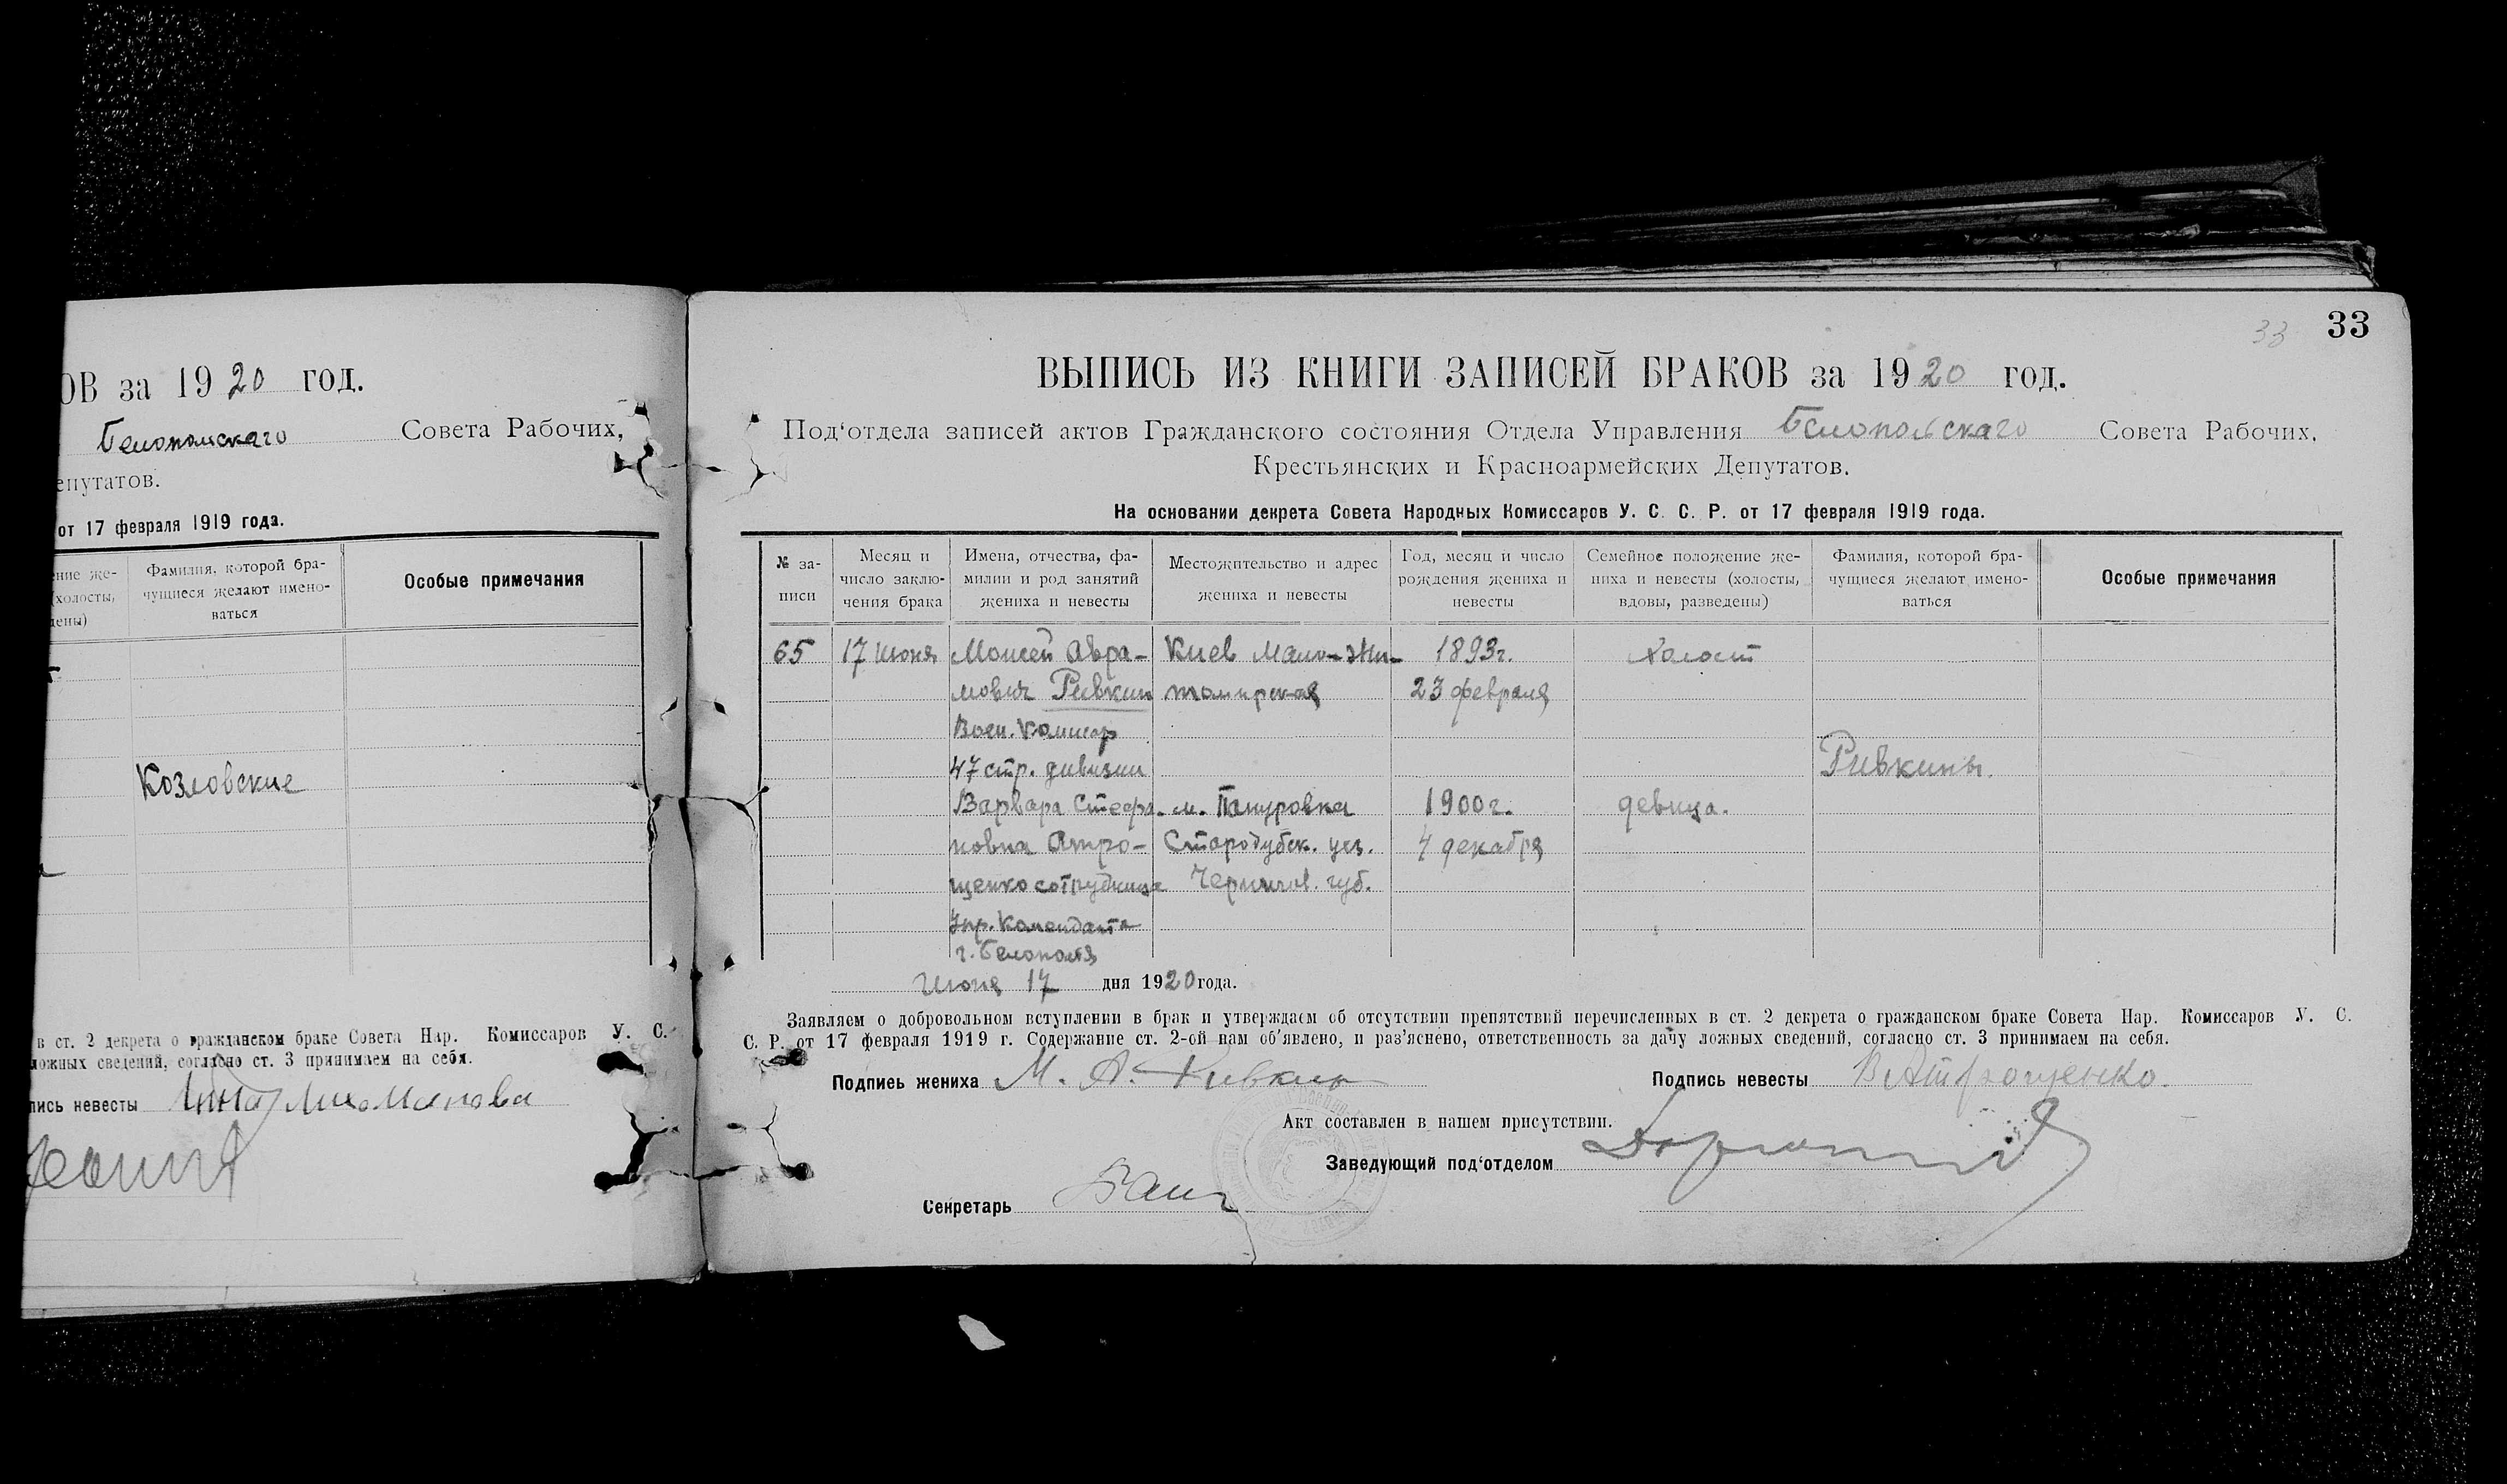 ОВ за 1920 год.
Белопольскаго Совета Рабочих,
епутатов.
от 17 февраля 1919 года.
ение же-
(холосты,
дены)
Фамилия, которой бра-
чущиеся желают имено-
ваться
Особые примечания
Козловские
в ст. 2 декрета о гражданском браке Совета Нар. Комиссаров У. С.
ложных сведений, согласно ст. 3 принимаем на себя.
пись невесты
33
33
ВЫПИСЬ ИЗ КНИГИ ЗАПИСЕЙ БРАКОВ за 1920 год.
Под‘отдела записей актов Гражданского состояния Отдела Управления Белопольскаго Совета Рабочих,
Крестьянских и Красноармейских Депутатов.
На основании декрета Совета Народных Комиссаров У. С. С. Р. от 17 февраля 1919 года.
№ за-
писи
Месяц и
число заклю-
чения брака
Имена, отчества, фа-
милии и род занятий
жениха и невесты
Местожительство и адрес
жениха и невесты
Год, месяц и число
рождения жениха и
невесты
Семейное положение же-
ниха и невесты (холосты,
вдовы, разведены)
Фамилия, которой бра-
чущиеся желают имено-
ваться
Особые примечания
65 17 Июня Моисей Авра- Киев Мало-Жи- 1893г. Холост
мович Ривкин томирская 23 февраля
Воен. Комисар
47 стр. дивизии Ривкины.
Варвара Стефа- м. Пануровка 1900г. девица.
новна Атро- Стародубск. уез. 4 декабря
щенко сотрудница Чернигов. губ.
Упр. Коменданта
г. Белополя
Июня 17 дня 1920 года.
Заявляем о добровольном вступлении в брак и утверждаем об отсутствии препятствий перечисленных в ст. 2 декрета о гражданском браке Совета Нар. Комиссаров У. С.
С. Р. от 17 февраля 1919 г. Содержание ст. 2-ой нам об‘явлено, и раз‘яснено, ответственность за дачу ложных сведений, согласно ст. 3 принимаем на себя.
Подпись жениха М. А. Ривкин Подпись невесты В Атрощенко.
Акт составлен в нашем присутствии.
Заведующий под‘отделом
Секретарь